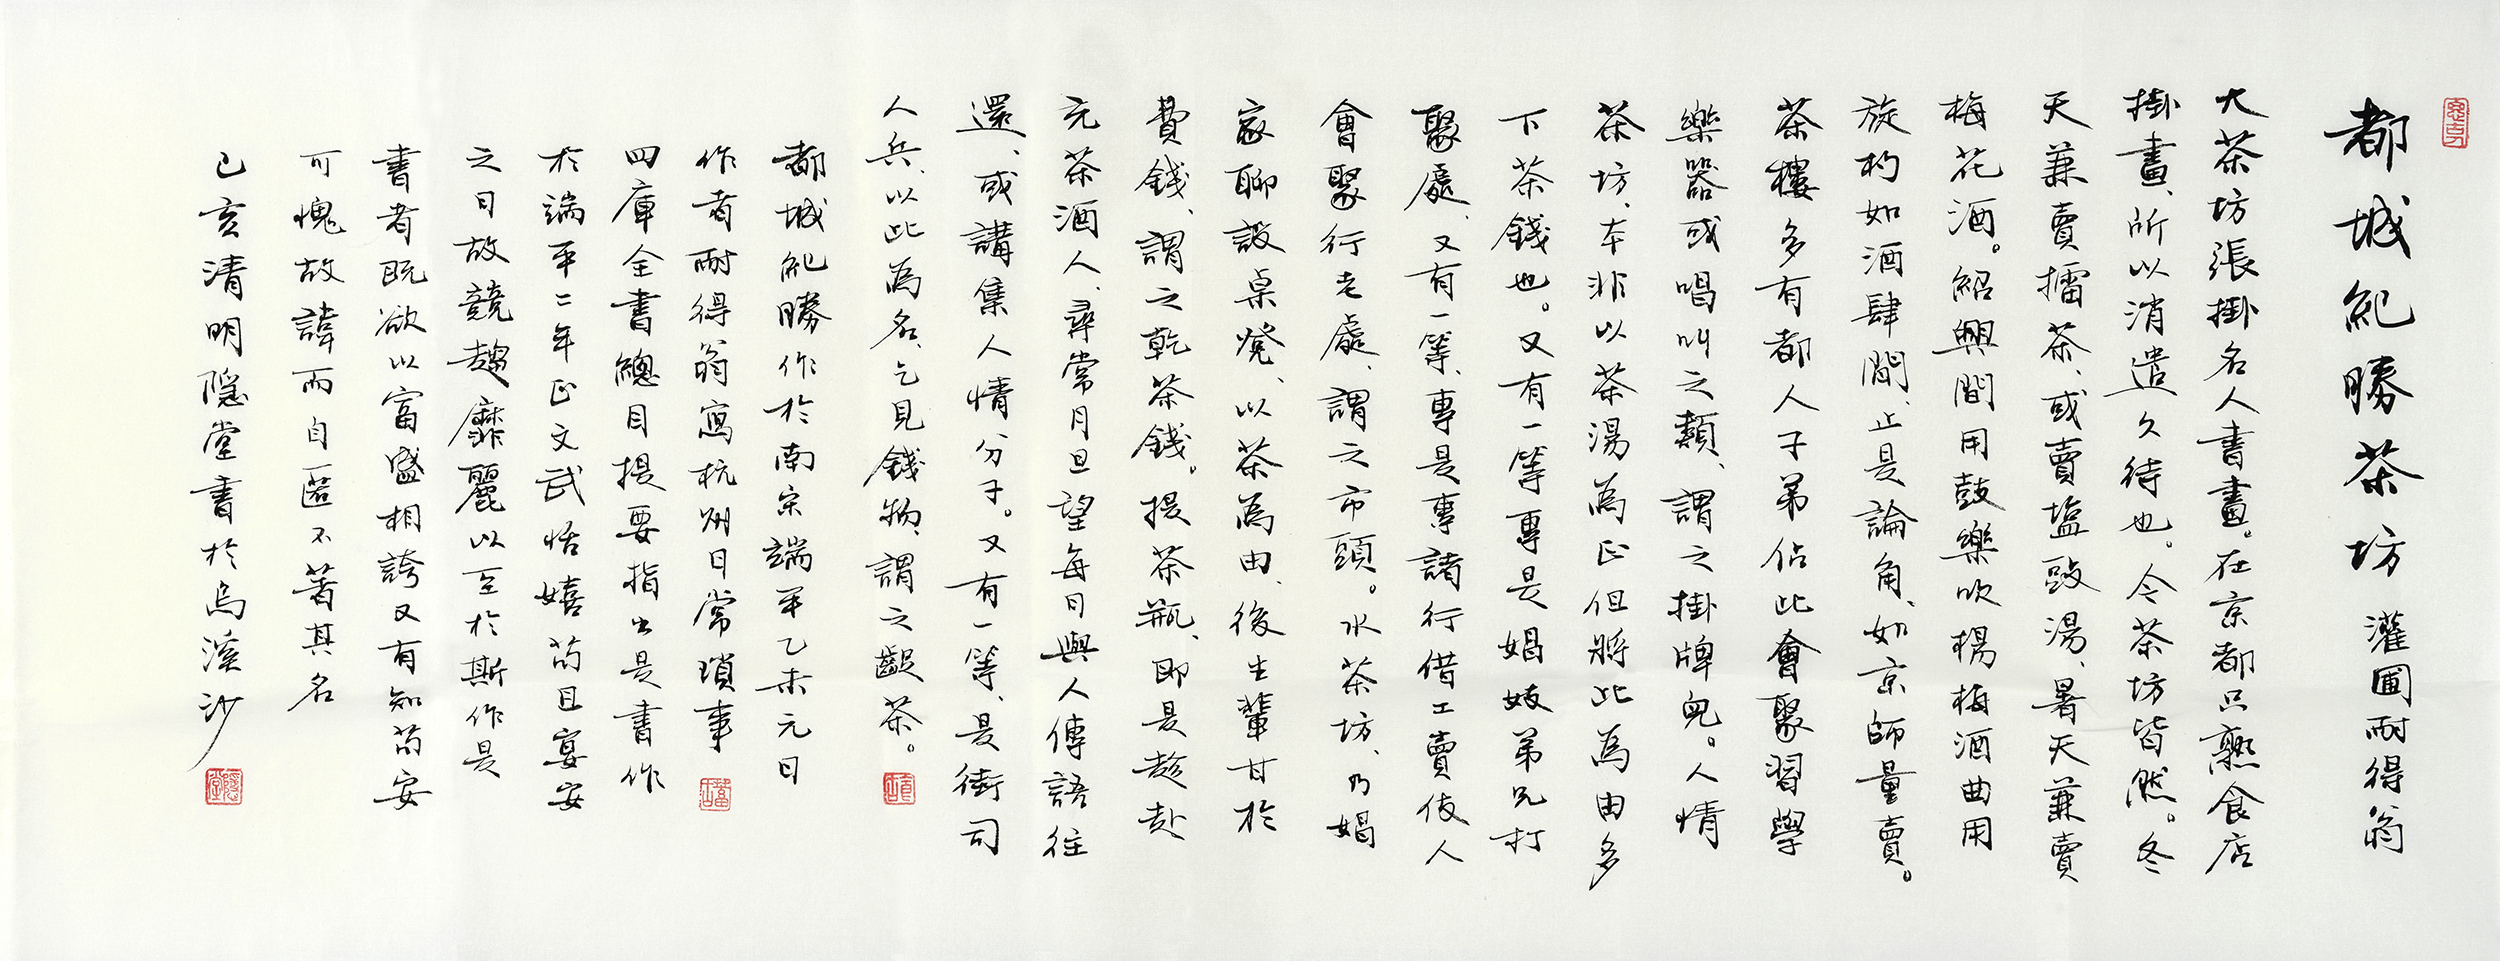 都城紀勝茶坊 灌圃耐得翁
大茶坊張掛名人書畫。在京都只熟食店
掛畫、所以消遣久待也。今茶坊皆然。冬
天兼賣擂茶、或賣塩豉湯、暑天兼賣
梅花酒。紹興間用鼓樂吹楊梅酒曲用
旋杓如酒肆間、止是論角、如京師量賣。
茶樓多有都人子弟佔此會聚習學
樂器或唱叫之類、謂之掛牌兒。人情
茶坊、本非以茶湯為正但將此為由多
下茶錢也。又有一等專是娼妓弟兄打
聚處、又有一等、專是專諸行借工賣伎人
會聚行老處、謂之市頭。水茶坊、乃娼
家聊設桌凳、以茶為由、後生輩甘於
費錢、謂之乾茶錢。提茶瓶、即是趁赴
充茶酒人、尋常月旦望每日與人傳語往
還、或講集人情分子。又有一等、是街司
人兵、以此為名、乞見錢物、謂之齪茶。
都城紀勝作於南宋端平乙未元日
作者耐得翁寫杭州日常瑣事
四庫全書總目提要指出是書作
於端平二年正文武恬嬉苟且宴安
之日故競趨靡麗以至於斯作是
書者既欲以富盛相誇又有知苟安
可愧故諱而自匿不著其名
己亥清明隱堂書於烏溪沙
隱堂